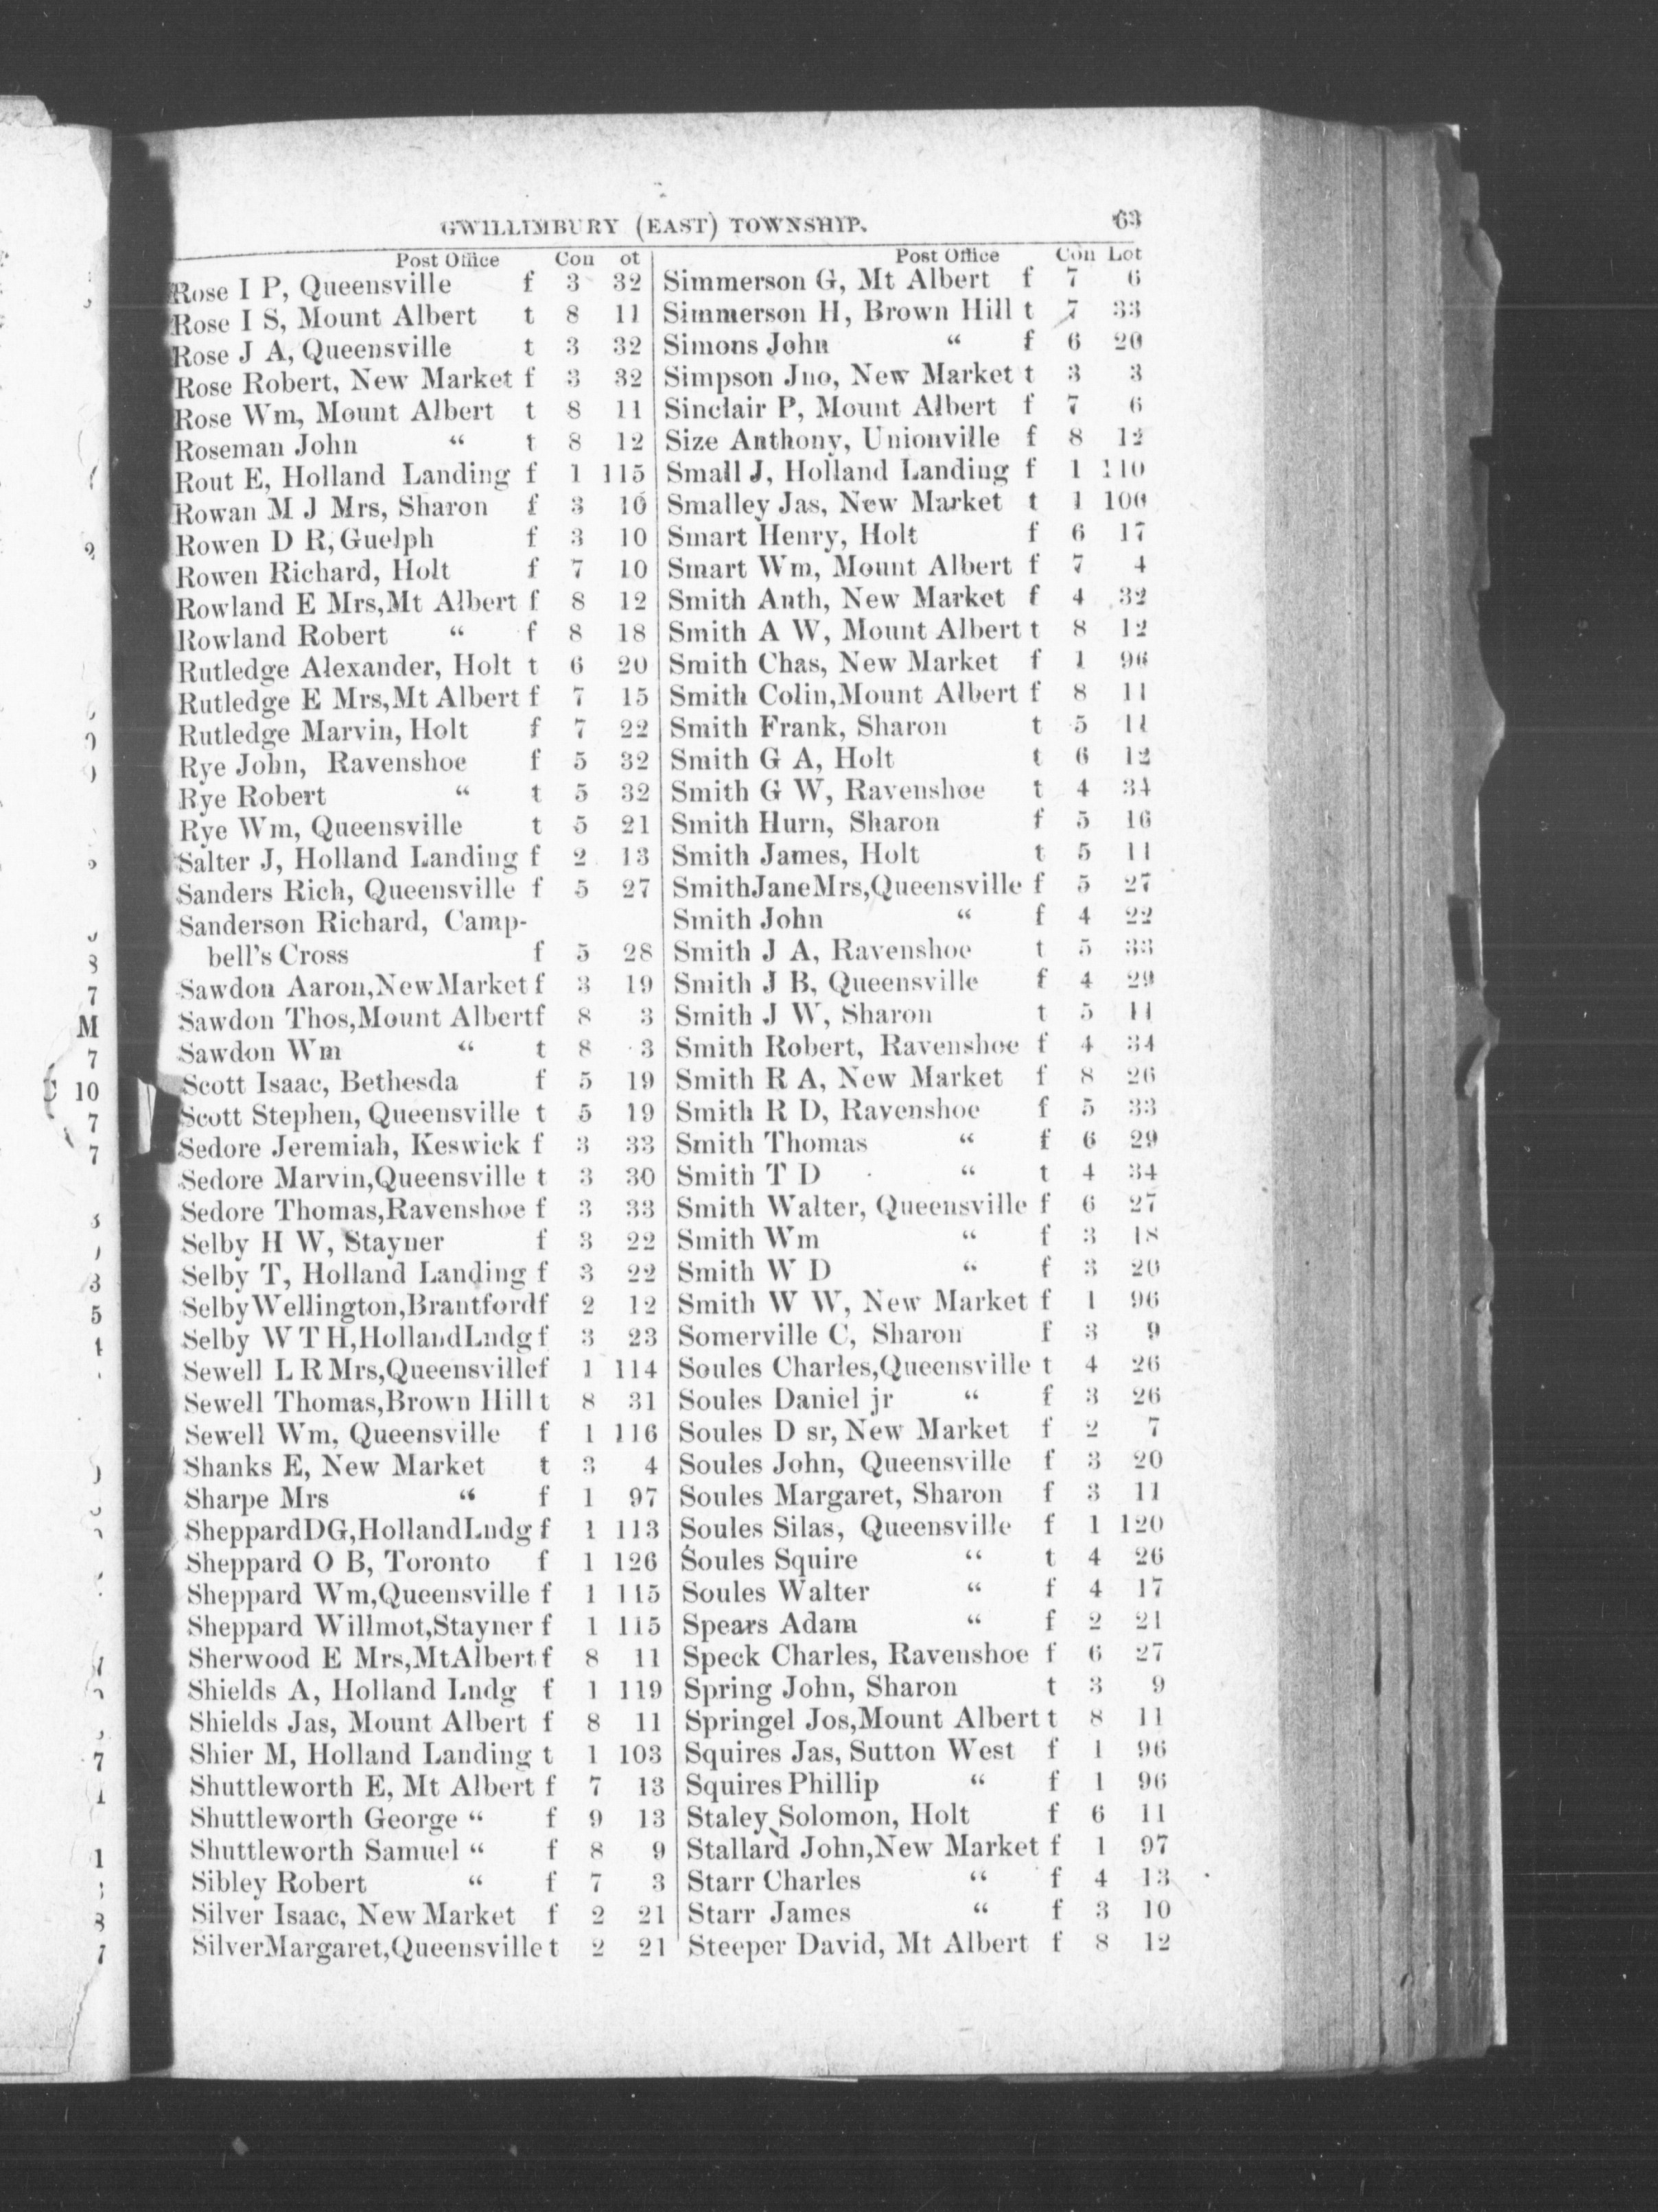 GWILLIMBURY (EAST) TOWNSHIP. 63
Post Office Con ot
Rose I P, Queensville f 3 32
Rose I S, Mount Albert t 8 11
Rose J A, Queensville t 3 32
Rose Robert, New Market f 3 32
Rose Wm, Mount Albert t 8 11
Roseman John “ t 8 12
Rout E, Holland Landing f 1 115
Rowan M J Mrs, Sharon f 3 10
Rowen D R, Guelph f 3 10
Rowen Richard, Holt f 7 10
Rowland E Mrs,Mt Albert f 8 12
Rowland Robert “ f 8 18
Rutledge Alexander, Holt t 6 20
Rutledge E Mrs,Mt Albert f 7 15
Rutledge Marvin, Holt f 7 22
Rye John, Ravenshoe f 5 32
Rye Robert “ t 5 32
Rye Wm, Queensville t 5 21
Salter J, Holland Landing f 2 13
Sanders Rich, Queensville f 5 27
Sanderson Richard, Camp-
bell's Cross f 5 28
Sawdon Aaron,NewMarket f 3 19
Sawdon Thos,Mount Albertf 8 3
Sawdon Wm “ t 8 3
Scott Isaac, Bethesda f 5 19
Scott Stephen, Queensville t 5 19
Sedore Jeremiah, Keswick f 3 33
Sedore Marvin,Queensville t 3 30
Sedore Thomas,Ravenshoe f 3 33
Selby H W, Stayner f 3 22
Selby T, Holland Landing f 3 22
SelbyWellington,Brantfordf 2 12
Selby W T H,HollandLndg f 3 23
Sewell L R Mrs,Queensvillef 1 114
Sewell Thomas,Brown Hill t 8 31
Sewell Wm, Queensville f 1 116
Shanks E, New Market t 3 4
Sharpe Mrs “ f 1 97
SheppardDG,HollandLndg f 1 113
Sheppard O B, Toronto f 1 126
Sheppard Wm,Queensville f 1 115
Sheppard Willmot,Stayner f 1 115
Sherwood E Mrs,MtAlbert f 8 11
Shields A, Holland Lndg f 1 119
Shields Jas, Mount Albert f 8 11
Shier M, Holland Landing t 1 103
Shuttleworth E, Mt Albert f 7 13
Shuttleworth George “ f 9 13
Shuttleworth Samuel “ f 8 9
Sibley Robert “ f 7 3
Silver Isaac, New Market f 2 21
SilverMargaret,Queensville t 2 21
Post Office Con Lot
Simmerson G, Mt Albert f 7 6
Simmerson H, Brown Hill t 7 33
Simons John “ f 6 20
Simpson Jno, New Market t 3 3
Sinclair P, Mount Albert f 7 6
Size Anthony, Unionville f 8 12
Small J, Holland Landing f 1 110
Smalley Jas, New Market t 1 100
Smart Henry, Holt f 6 17
Smart Wm, Mount Albert f 7 4
Smith Anth, New Market f 4 32
Smith A W, Mount Albert t 8 12
Smith Chas, New Market f 1 96
Smith Colin,Mount Albert f 8 11
Smith Frank, Sharon t 5 11
Smith G A, Holt t 6 12
Smith G W, Ravenshoe t 4 34
Smith Hurn, Sharon f 5 16
Smith James, Holt t 5 11
SmithJaneMrs,Queensville f 5 27
Smith John “ f 4 22
Smith J A, Ravenshoe t 5 33
Smith J B, Queensville f 4 29
Smith J W, Sharon t 5 11
Smith Robert, Ravenshoe f 4 34
Smith R A, New Market f 8 26
Smith R D, Ravenshoe f 5 33
Smith Thomas “ f 6 29
Smith T D “ t 4 34
Smith Walter, Queensville f 6 27
Smith Wm “ f 3 18
Smith W D “ f 3 20
Smith W W, New Market f 1 96
Somerville C, Sharon f 3 9
Soules Charles,Queensville t 4 26
Soules Daniel jr “ f 3 26
Soules D sr, New Market f 2 7
Soules John, Queensville f 3 20
Soules Margaret, Sharon f 3 11
Soules Silas, Queensville f 1 120
Soules Squire “ t 4 26
Soules Walter “ f 4 17
Spears Adam “ f 2 21
Speck Charles, Ravenshoe f 6 27
Spring John, Sharon t 3 9
Springel Jos,Mount Albert t 8 11
Squires Jas, Sutton West f 1 96
Squires Phillip “ f 1 96
Staley Solomon, Holt f 6 11
Stallard John,New Market f 1 97
Starr Charles “ f 4 13
Starr James “ f 3 10
Steeper David, Mt Albert f 8 12